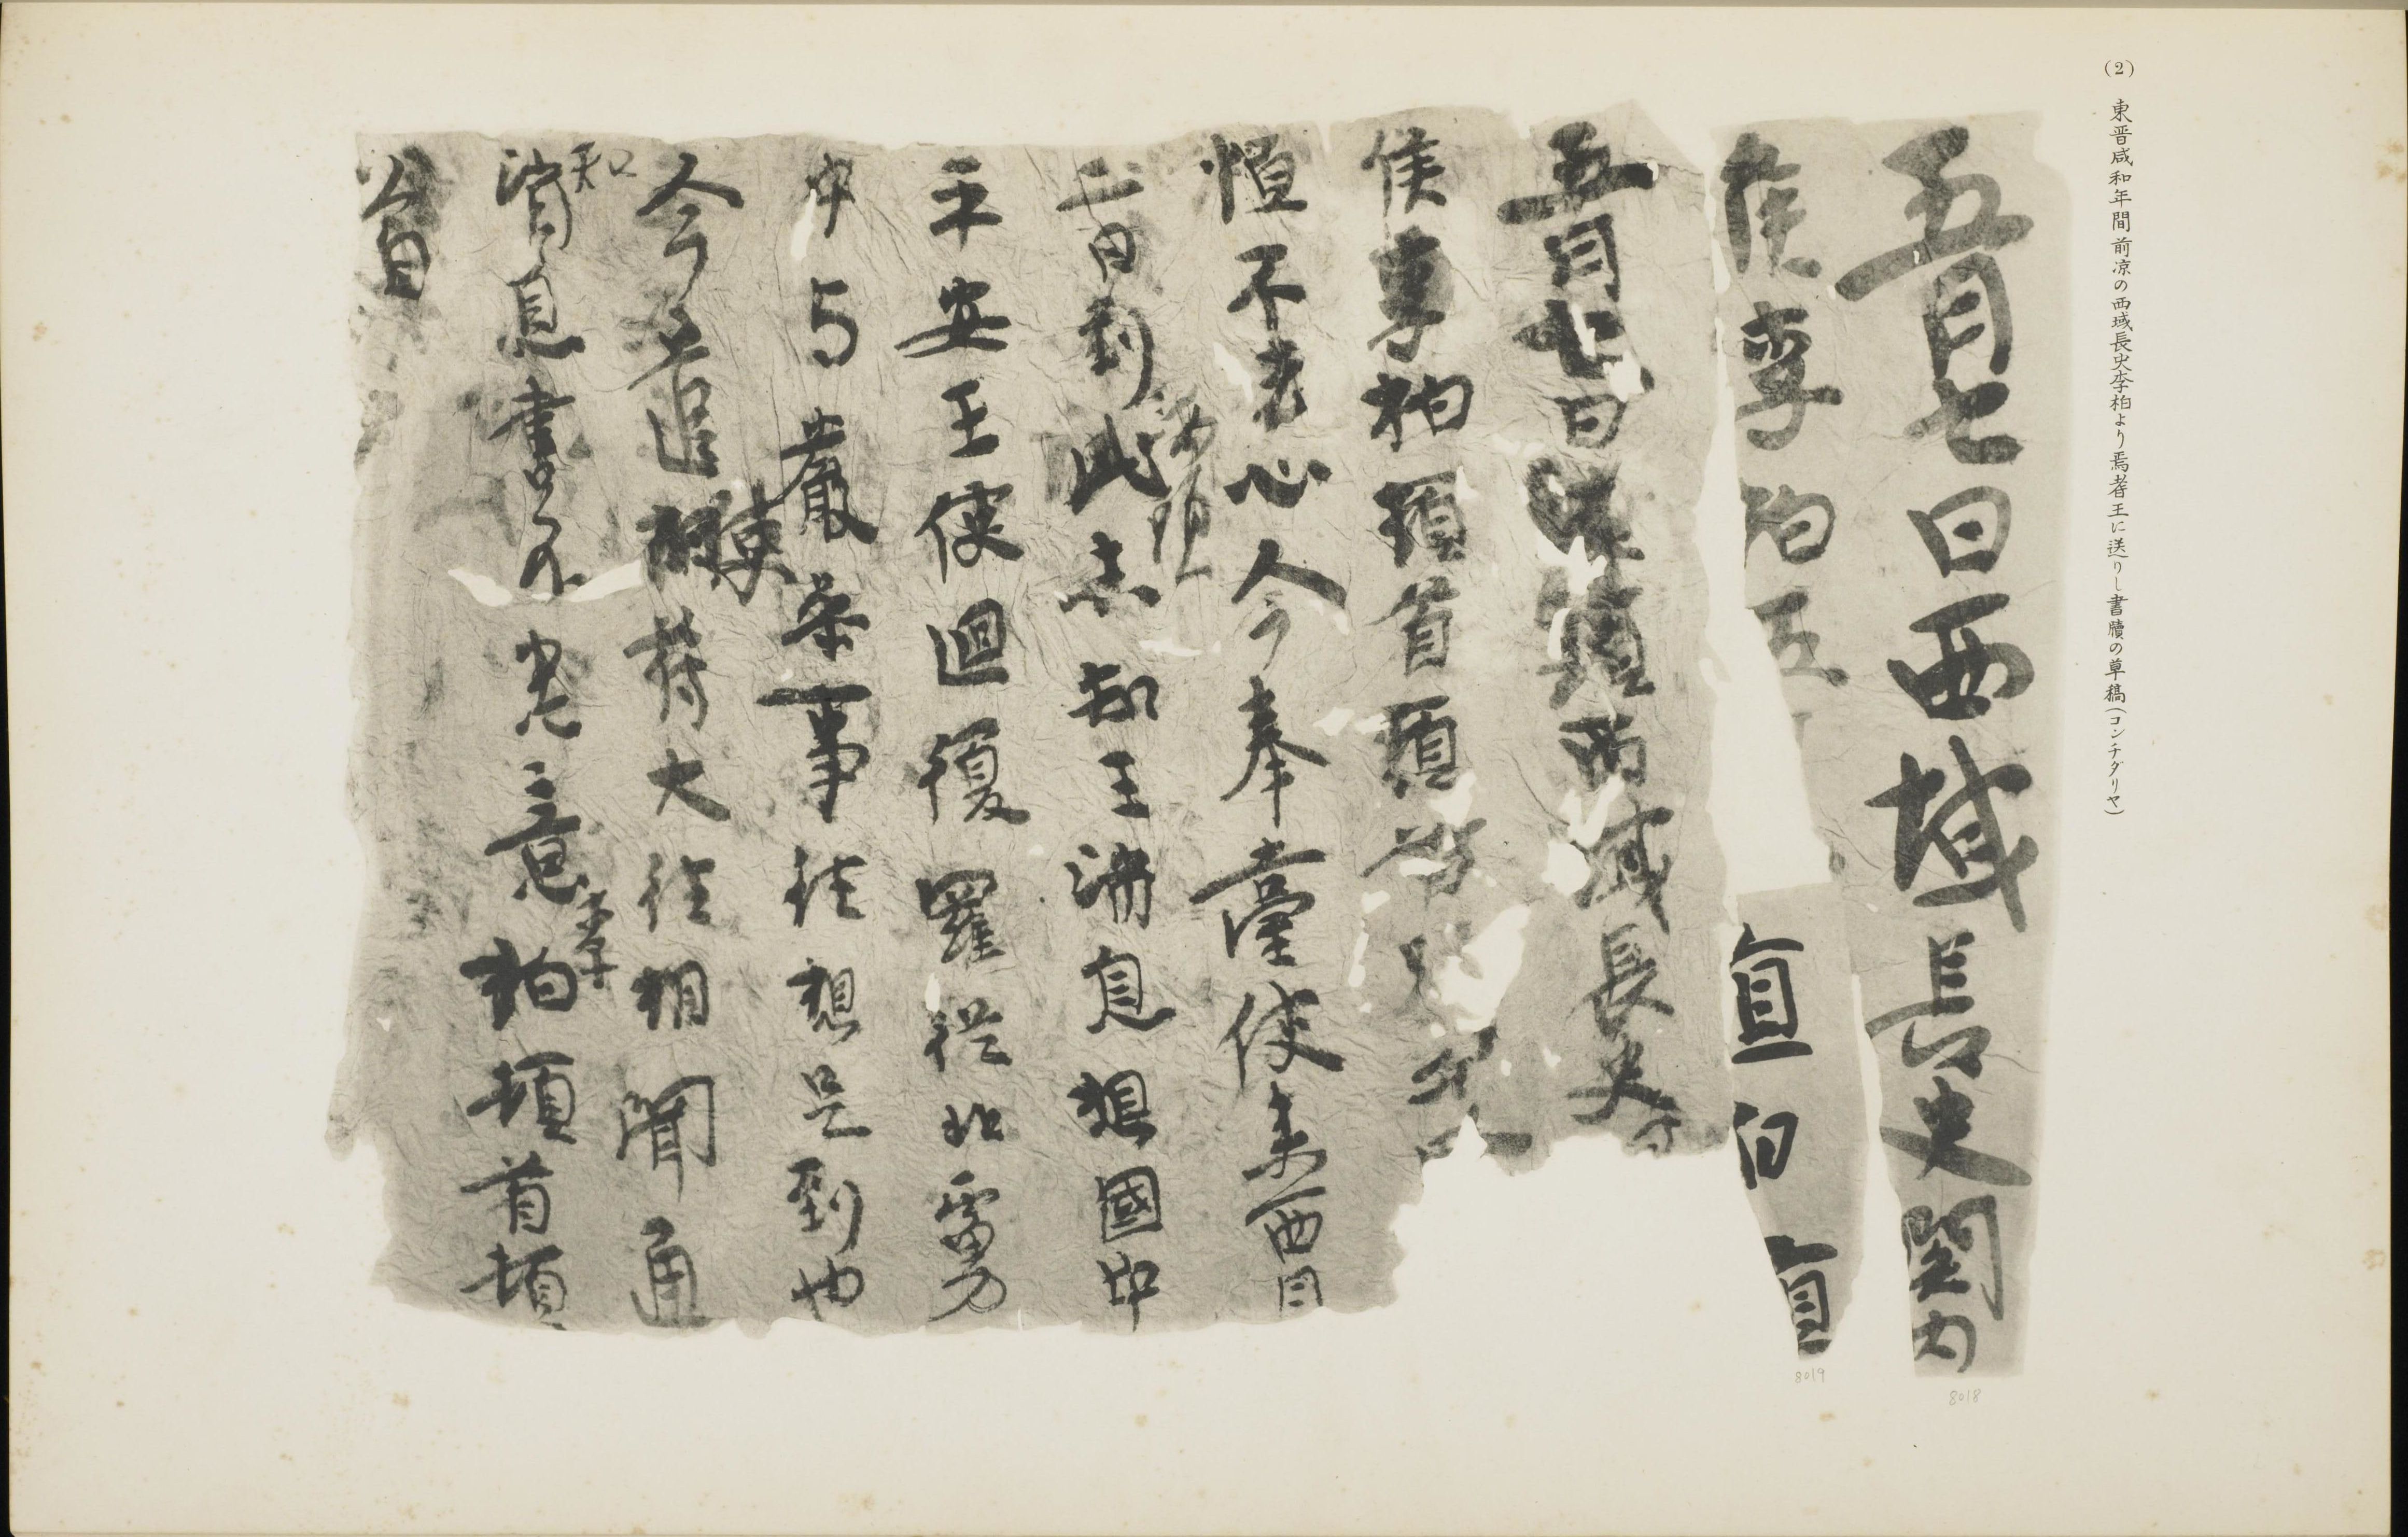 (2) 東晋咸和年間前凉の西域長史李柏より焉耆王に送りし書牘の草稿(コンチダリヤ)
五月七日西域長史関内
侯李柏
五月七日 西域長史
侯李柏頓首頓首
恒不去心今奉臺使来西月
二日到此
海頭
未知王消息想國中
平安王使迴復羅從北虜
中与嚴參事往想是到也
今遣
使
符大往相聞通
知
消息書不悉意
李
柏頓首頓
首
8019
8018